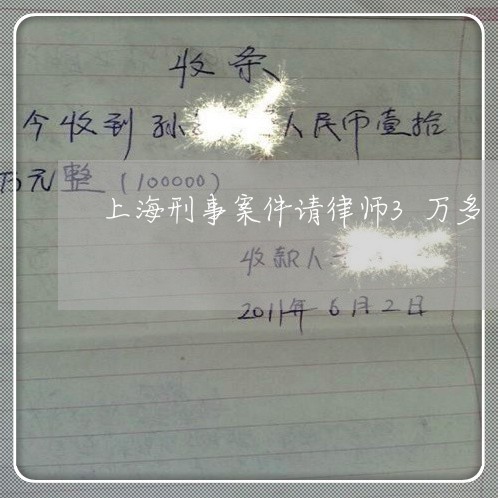 收条
今收到孙 人民币壹拾
万元整(100000)
上海刑事案件请律师3万多
收款人
2011年6月2日